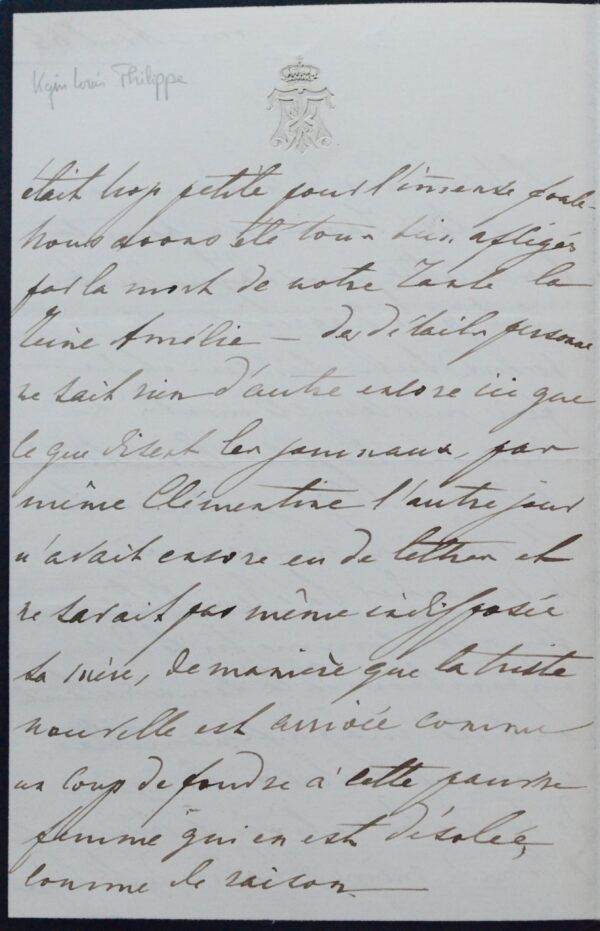 Kgin Louis Philippe
était trop petite pour l'immense foule-
nous avons été tous bien affligés
par la mort de notre Tante la
Reine Amélie — des détails personne
ne sait rien d'autre encore ici que
ce que disent les journaux, pas
même Clémentine l'autre jour
n'avait encore eu de lettres et
ne savait pas même indisposée
sa mère, de manière que la triste
nouvelle est arrivée comme
un coup de foudre à cette pauvre
femme qui en est désolée,
comme de raison —